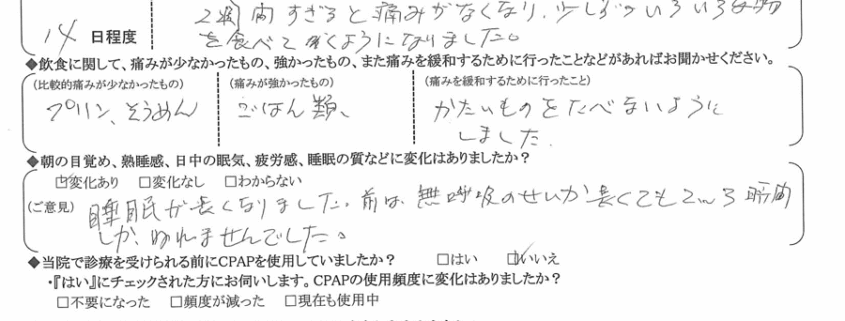 2週間すぎると痛みがなくなり、少しずついろいろな物
14 日程度 を食べて行くようになりました。
◆飲食に関して、痛みが少なかったもの、強かったもの、また痛みを緩和するために行ったことなどがあればお聞かせください。
(比較的痛みが少なかったもの) (痛みが強かったもの) (痛みを緩和するために行ったこと)
プリン、そうめん ごはん類、 かたいものをたべないように
しました.
◆朝の目覚め、熟睡感、日中の眠気、疲労感、睡眠の質などに変化はありましたか?
☑変化あり □変化なし □わからない
(ご意見) 睡眠が長くなりました。前は、無呼吸のせいか長くても 時間
しか、ねれませんでした。
◆当院で診療を受けられる前にCPAPを使用していましたか? □はい ☑いいえ
・『はい』にチェックされた方にお伺いします。CPAPの使用頻度に変化はありましたか?
□不要になった □頻度が減った □現在も使用中